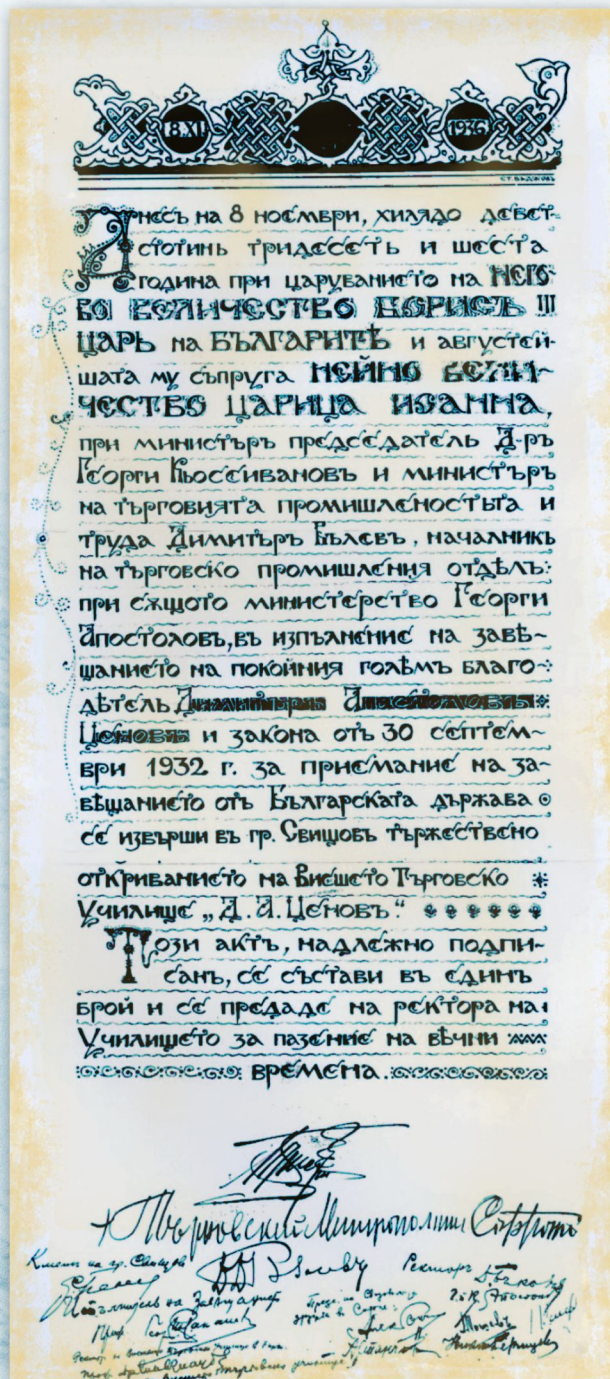 8.XI.
1936
СТ. БѢДЖОВЪ
Днесъ на 8 ноември, хилядо девет-
стотинь тридесеть и шеста
година при царуванието на НЕГО-
ВО ВЕЛИЧЕСТВО БОРИСЪ III
ЦАРЬ на БЪЛГАРИТѢ и августей-
шата му съпруга НЕЙНО ВЕЛИ-
ЧЕСТВО ЦАРИЦА ИОАННА,
при министъръ председатель Д-ръ
Георги Кьоссивановъ и министъръ
на търговията промишленостьта и
труда Димитъръ Вълевъ, началникъ
на търговско промишления отдѣлъ:
при сѫщото министерство Георги
Апостоловъ, въ изпълнение на завѣ-
щанието на покойния голѣмъ благо-
дѣтель Димитъръ Апостоловъ
Ценовъ и закона отъ 30 септем-
ври 1932 г. за приемание на за-
вѣщанието отъ Българската държава
се извърши въ гр. Свищовъ тържествено
откриванието на Висшето Търговско
Училище „Д. А. Ценовъ.“
Този актъ, надлежно подпи-
санъ, се състави въ единъ
брой и се предаде на ректора на
Училището за пазение на вѣчни
времена.
+ Търновский Митрополитъ Софроний
Кметъ на гр. Свищов
Ректоръ
Изпълнитель на Завещание
Проф.